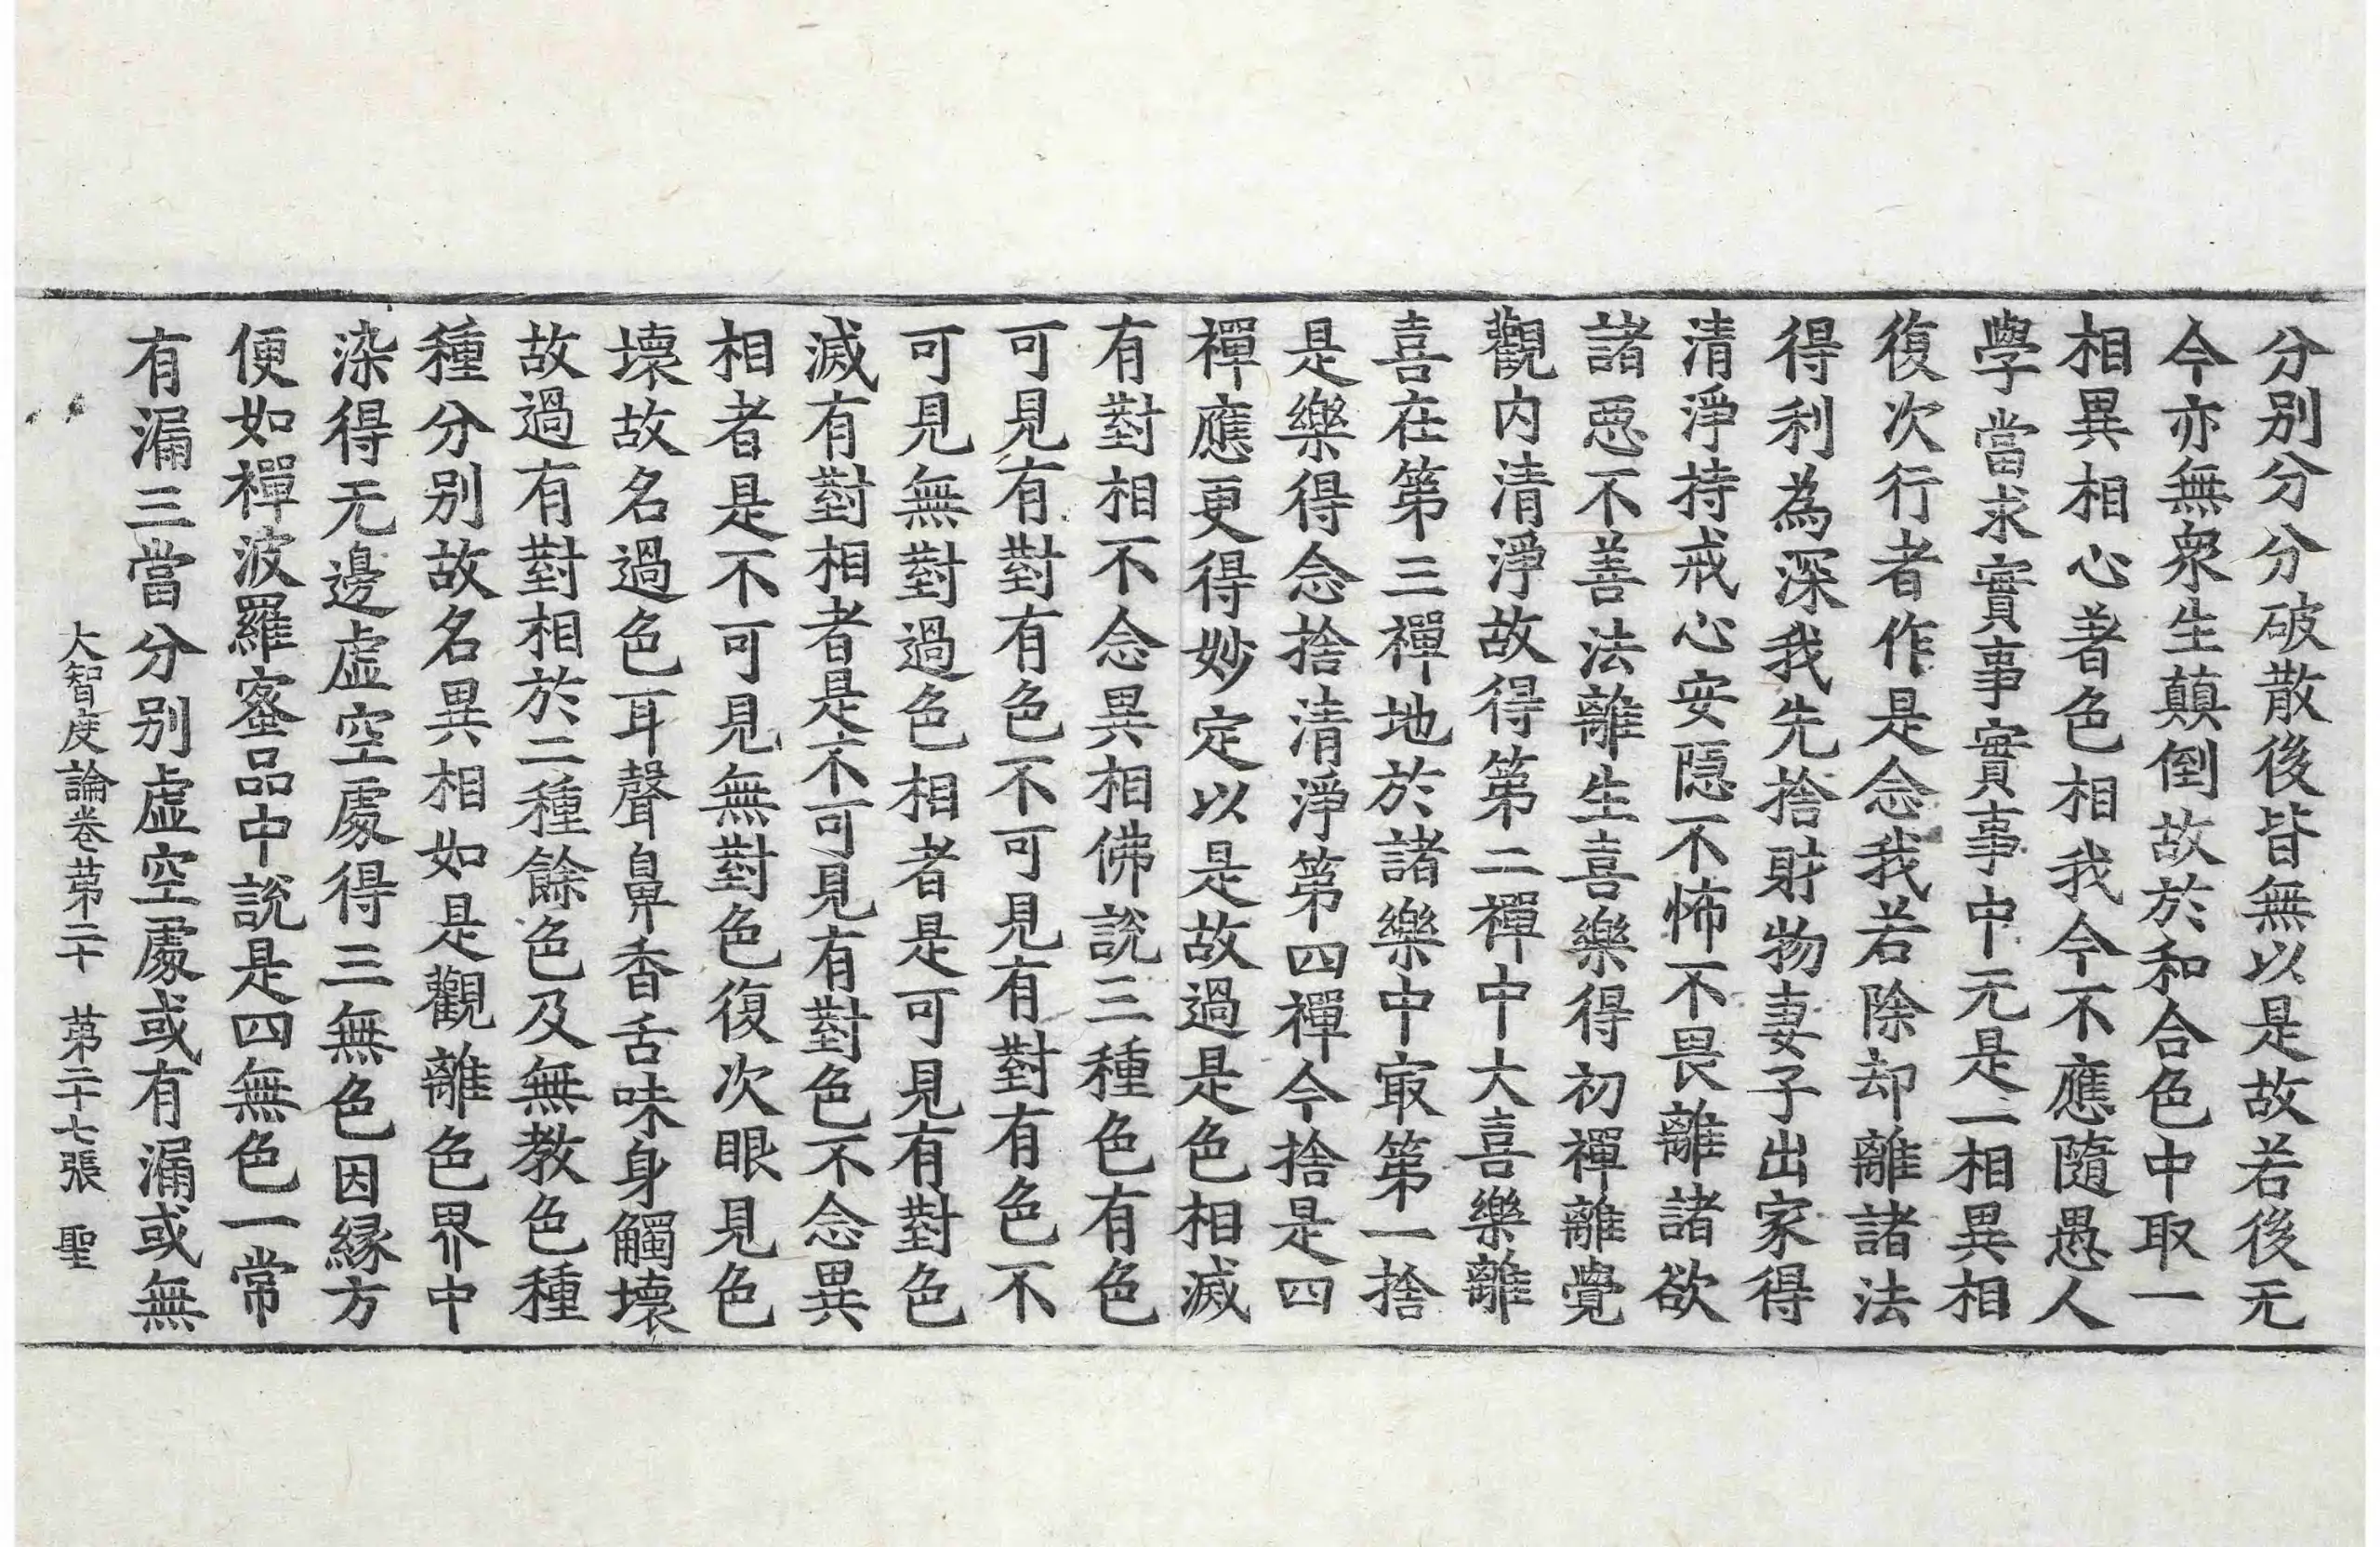 分别分分破散後皆無以是故若後无
今亦無衆生顛倒故於和合色中取一
相異相心著色相我今不應隨愚人
學當求實事實事中无是一相異相
復次行者作是念我若除却離諸法
得利為深我先捨財物妻子出家得
清淨持戒心安隱不怖不畏離諸欲
諸惡不善法離生喜樂得初禪離覺
觀内清淨故得第二禪中大喜樂離
喜在第三禪地於諸樂中㝡第一捨
是樂得念捨清淨第四禪今捨是四
禪應更得妙定以是故過是色相滅
有對相不念異相佛說三種色有色
可見有對有色不可見有對有色不
可見無對過色相者是可見有對色
滅有對相者是不可見有對色不念異
相者是不可見無對色復次眼見色
壞故名過色耳聲鼻香舌味身觸壞
故過有對相於二種餘色及無教色種
種分别故名異相如是觀離色界中
染得无邊虛空處得三無色因縁方
便如禪波羅蜜品中說是四無色一常
有漏三當分别虛空處或有漏或無
大智度論卷第二十 第二十七張 聖